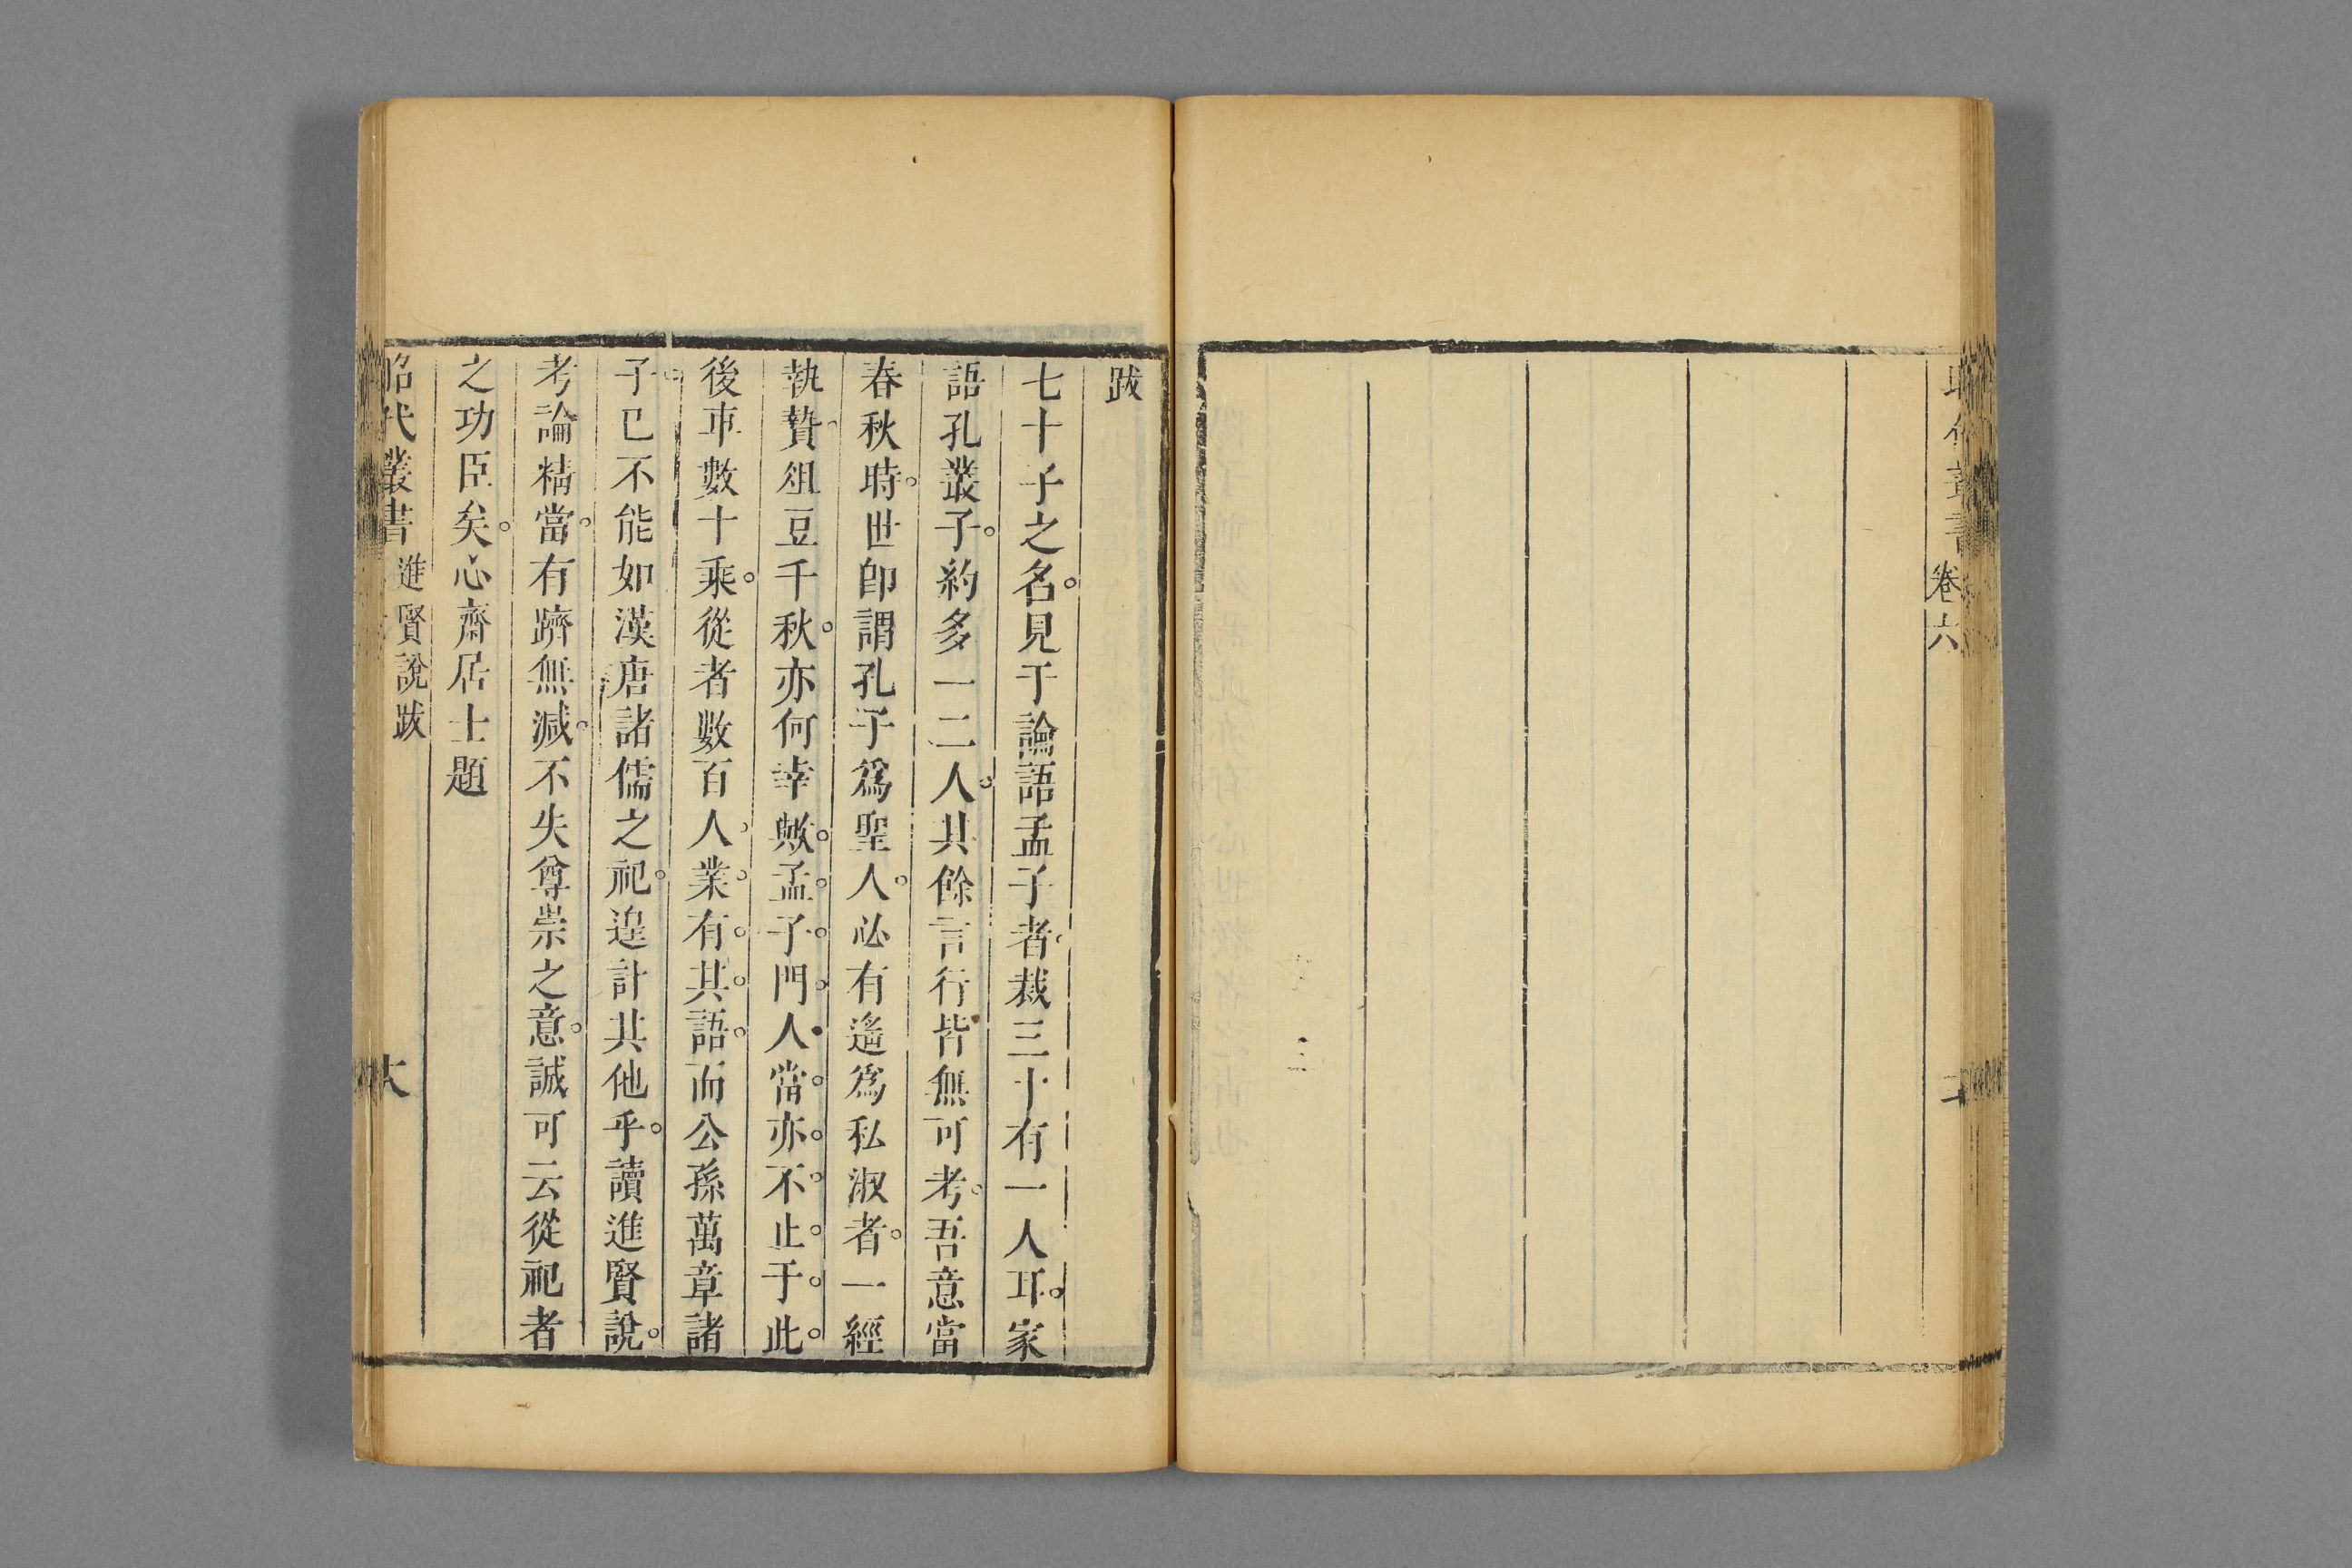 卷六
二
跋
七十子之名見于論語孟子者裁三十有一人耳家
語孔叢子約多一二人其餘言行皆無可考吾意當
春秋時世卽謂孔子爲聖人必有遙爲私淑者一經
執贄俎豆千秋亦何幸歟孟子門人當亦不止于此
後車數十乘從者數百人業有其語而公孫萬章諸
子已不能如漢唐諸儒之祀遑計其他乎讀進賢說
考論精當有躋無減不失尊崇之意誠可云從祀者
之功臣矣心齋居士題
昭代叢書 進賢說跋